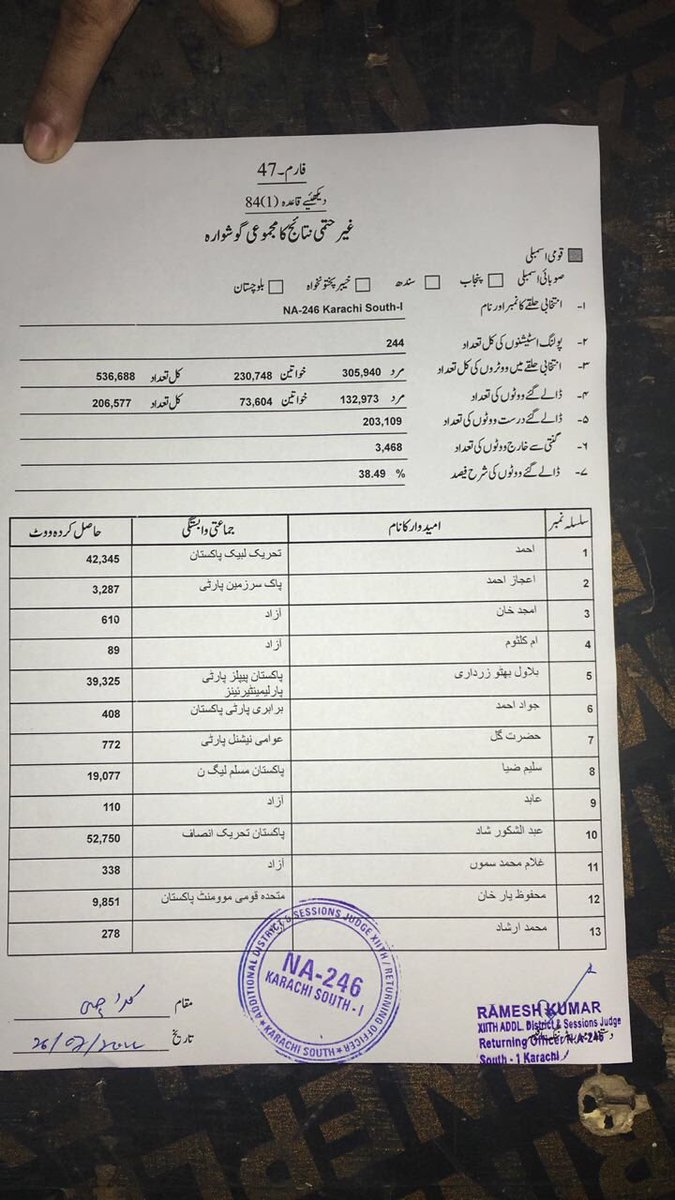 فارم۔47
دیکھئیے قاعدہ 84(1)
غیر حتمی نتائج کا مجموعی گوشوارہ
قومی اسمبلی
صوبائی اسمبلی پنجاب سندھ خیبر پختونخواہ بلوچستان
۱- انتخابی حلقے کا نمبر اور نام NA-246 Karachi South-I
۲- پولنگ اسٹیشنوں کی کل تعداد 244
۳- انتخابی حلقے میں ووٹروں کی کل تعداد مرد 305,940 خواتین 230,748 کل تعداد 536,688
۴- ڈالے گئے ووٹوں کی تعداد مرد 132,973 خواتین 73,604 کل تعداد 206,577
۵- ڈالے گئے درست ووٹوں کی تعداد 203,109
۶- گنتی سے خارج ووٹوں کی تعداد 3,468
۷- ڈالے گئے ووٹوں کی شرح فیصد 38.49 %
سلسلہ نمبر امیدوار کا نام جماعتی وابستگی حاصل کردہ ووٹ
1 احمد تحریک لبیک پاکستان 42,345
2 اعجاز احمد پاک سرزمین پارٹی 3,287
3 امجد خان آزاد 610
4 ام کلثوم آزاد 89
5 بلاول بھٹو زرداری پاکستان پیپلز پارٹی 39,325
پارلیمینٹیرئینز
6 جواد احمد برابری پارٹی پاکستان 408
7 حضرت گل عوامی نیشنل پارٹی 772
8 سلیم ضیا پاکستان مسلم لیگ ن 19,077
9 عابد آزاد 110
10 عبد الشکور شاد پاکستان تحریک انصاف 52,750
11 غلام محمد سموں آزاد 338
12 محفوظ یار خان متحدہ قومی موومنٹ پاکستان 9,851
13 محمد ارشاد 278
ADDITIONAL DISTRICT & SESSIONS JUDGE XIITH / RETURNING OFFICER
NA-246
KARACHI SOUTH - I
KARACHI SOUTH
مقام کراچی
تاریخ
RAMESH KUMAR
XIITH ADDL. District & Sessions Judge
Returning Officer NA-246
South - 1 Karachi